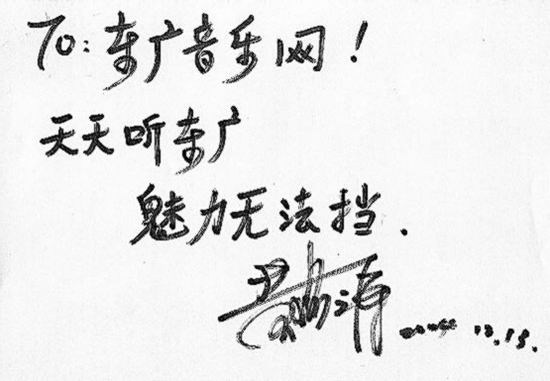 TO: 东广音乐网！
天天听东广
魅力无法挡.